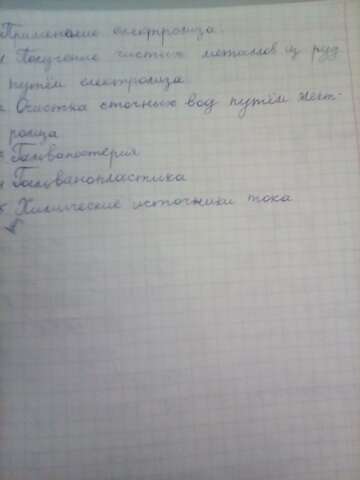 Применение електролиза:
1 Получение чистых металлов из руд
путём електролиза
2 Очистка сточных вод путём элект-
ролиза
3 Гальваностерия
4 Гальванопластика
5 Химические источники тока